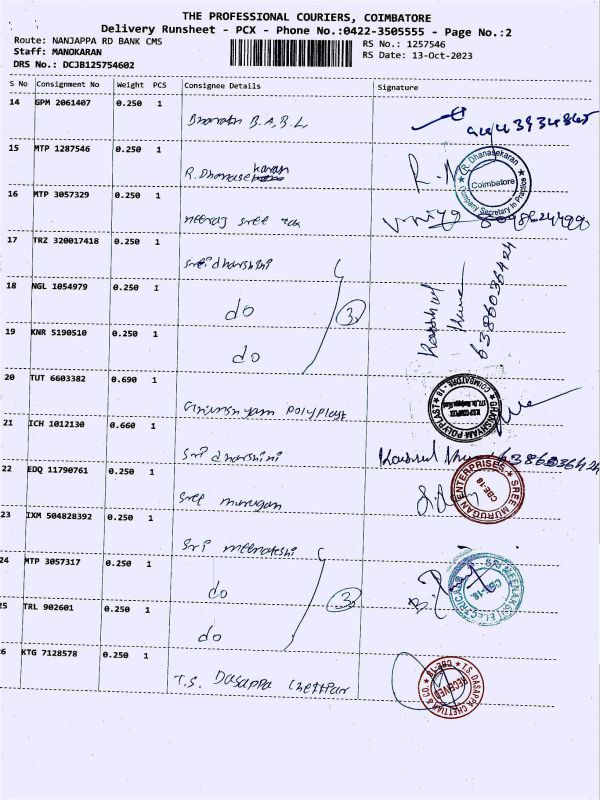 THE PROFESSIONAL COURIERS, COIMBATORE
Delivery Runsheet - PCX - Phone No.:0422-3505555 - Page No.:2
Route: NANJAPPA RD BANK CMS
RS No.: 1257546
Staff: MANOKARAN
RS Date: 13-Oct-2023
DRS No.: DCJB125754602
S No Consignment No Weight PCS Consignee Details Signature
14 GPM 2061407 0.250 1
B.A,B.L,
15 MTP 1287546 0.250 1
R. Dhanasekaran
R. Dhanasekaran
Coimbatore
Company Secretary In Practice
16 MTP 3057329 0.250 1
neeraj sree
17 TRZ 320017418 0.250 1
sreidharshini
18 NGL 1054979 0.250 1
do
3
6386036424
19 KNR 5190510 0.250 1
do
20 TUT 6603382 0.690 1
Ghanshyam Polyplast
GHANSHYAM POLYPLAST
COIMBATORE - 18
21 ICH 1012130 0.660 1
Sri dharshini
6386036424
22 EDQ 11790761 0.250 1
Sree murugan
SREE MURUGAN ENTERPRISES
CBE-18
23 IXM 504828392 0.250 1
Sri meenakshi
24 MTP 3057317 0.250 1
do
3
SRI MEENAKSHI ELECTRICALS
CBE-18
25 TRL 902601 0.250 1
do
26 KTG 7128578 0.250 1
T.S. Dasappa Chettiar
T.S. DASAPPA CHETTIAR & CO.
CBE-18
RECEIVED